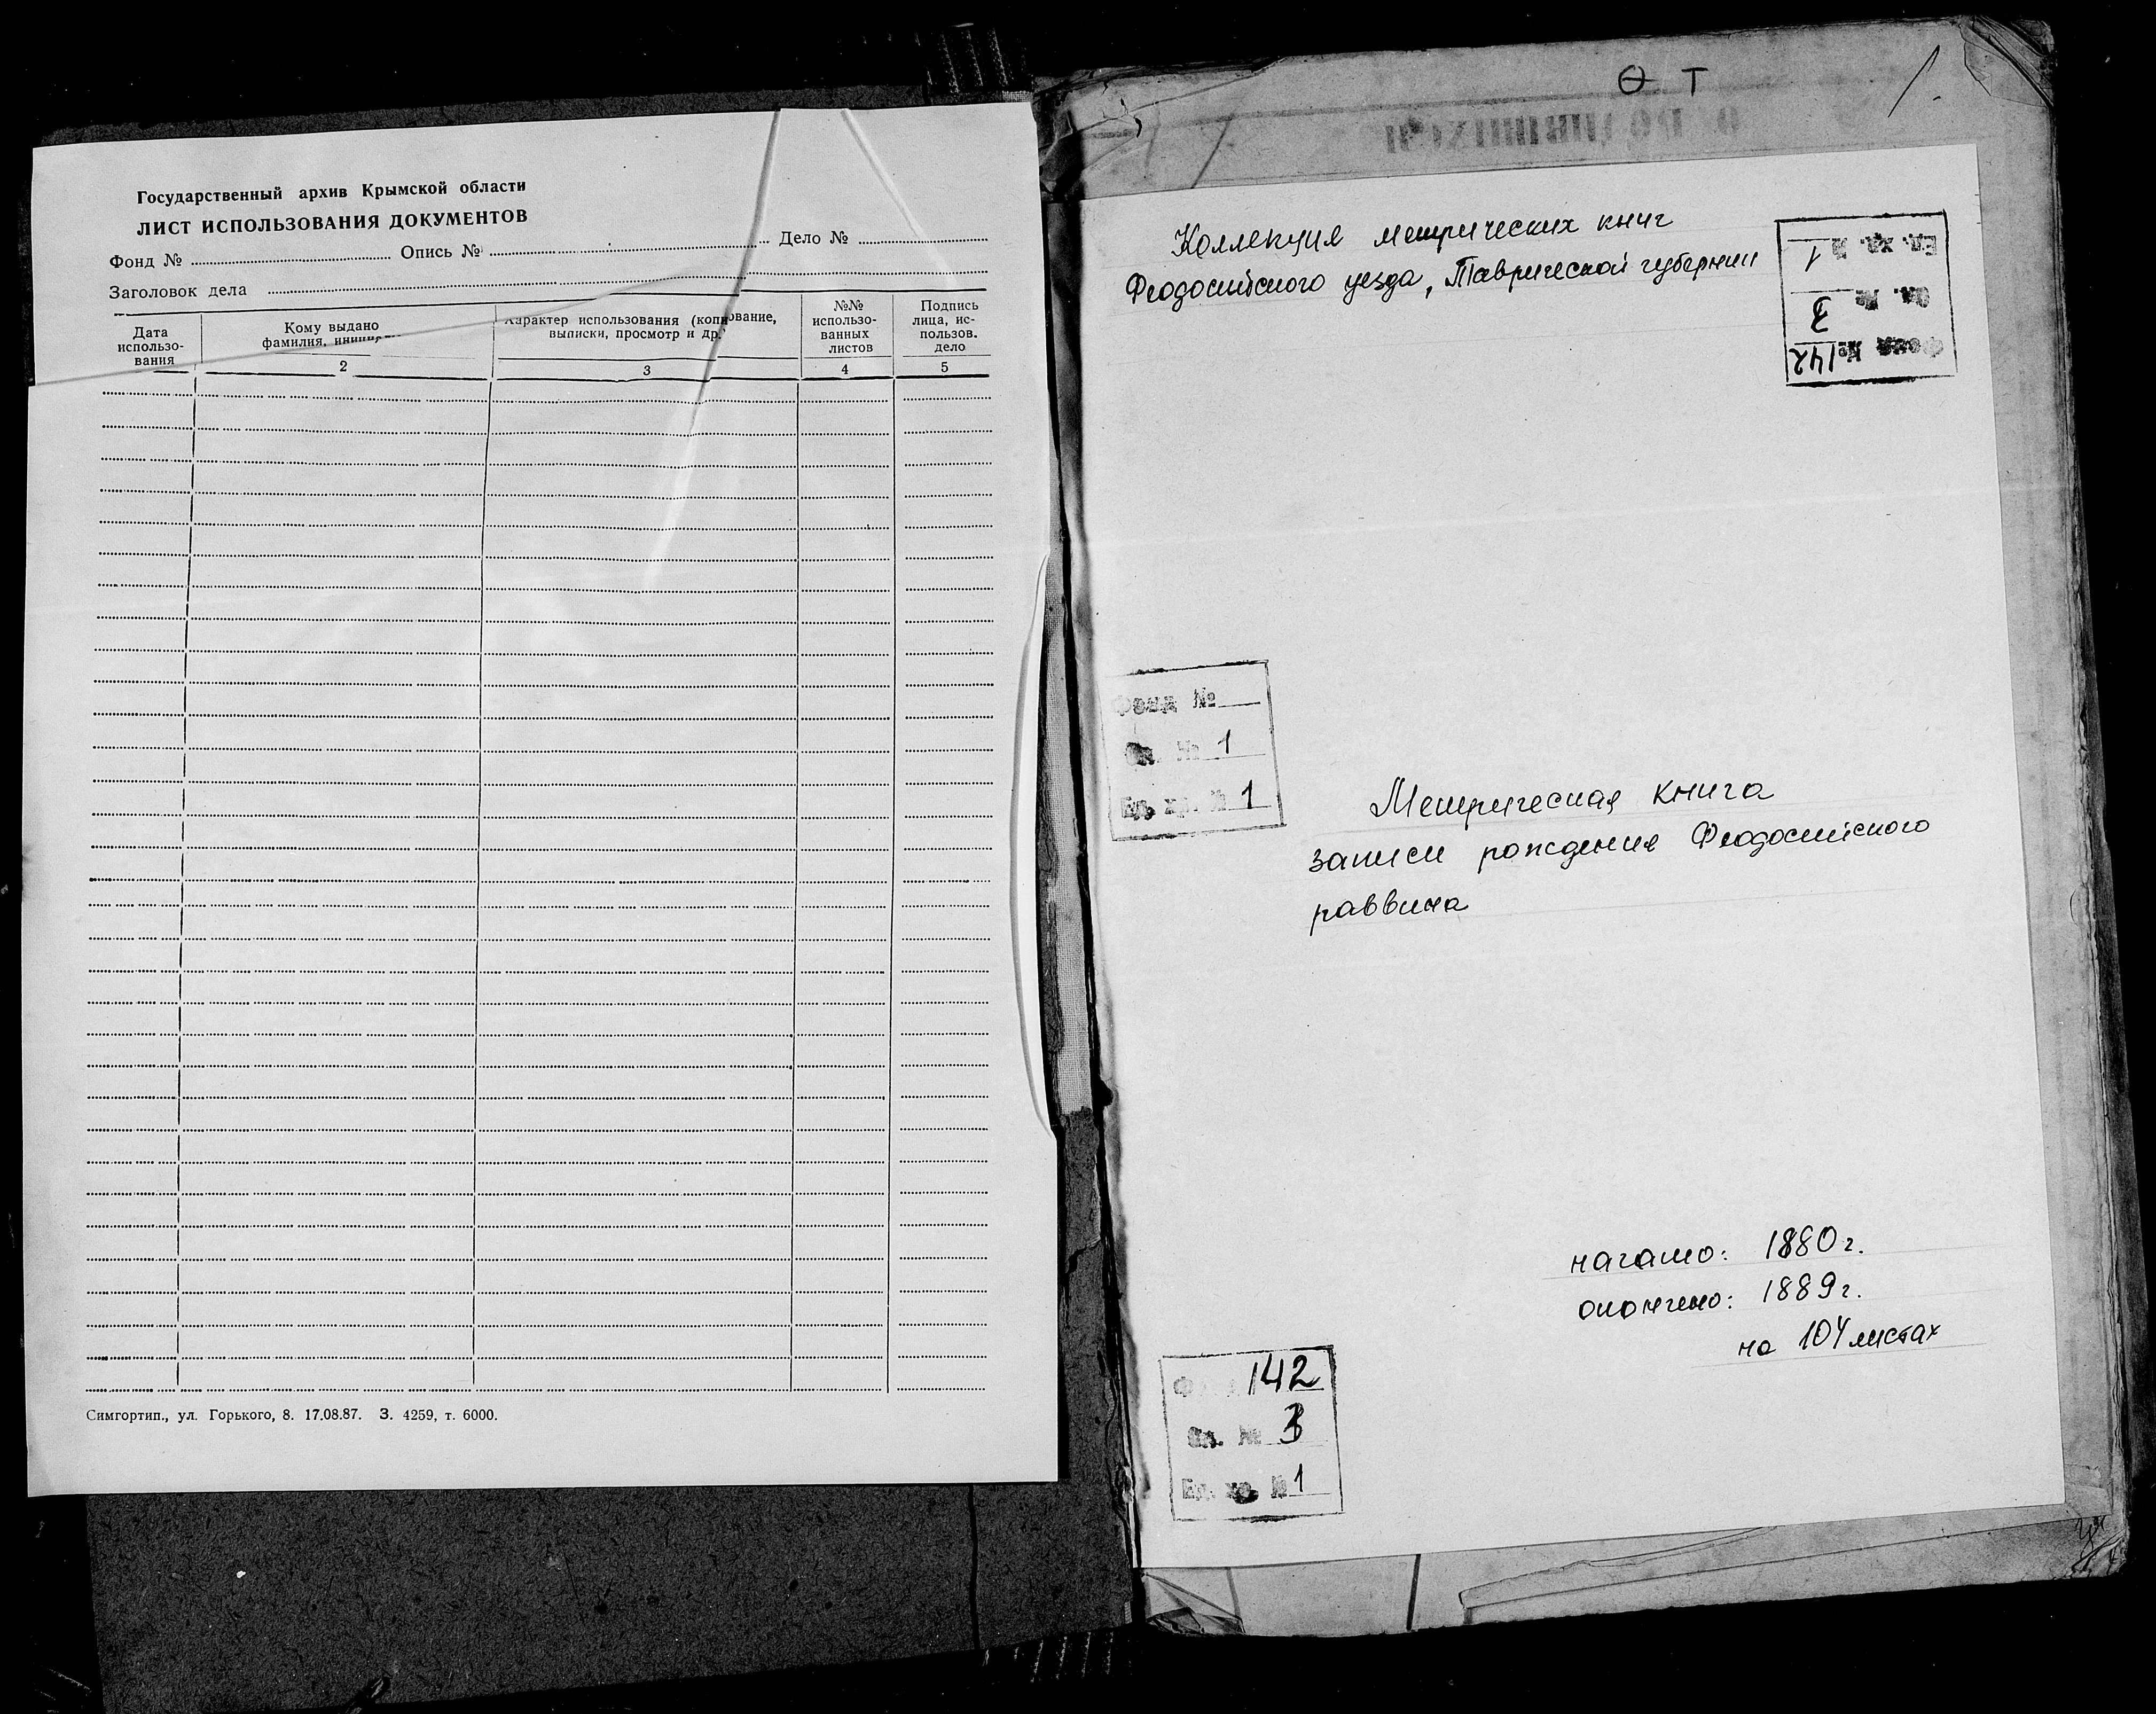 Государственный архив Крымской области
ЛИСТ ИСПОЛЬЗОВАНИЯ ДОКУМЕНТОВ
Фонд № Опись № Дело №
Заголовок дела
Дата использо-вания
Кому выдано фамилия,
Характер использования (копирование, выписки, просмотр и др.
№№ использо-ванных листов
Подпись лица, ис-пользов. дело
2 3 4 5
Симгортип., ул. Горького, 8. 17.08.87. З. 4259, т. 6000.
Ѳ Т
1.
Коллекция метрических книг
Феодосийского уезда, Таврической губернии
Ед. хр. № 1
Оп. № 3
Фонд № 142
Фонд №
Оп. № 1
Ед. хр. № 1
Метрическая книга
записи рождения Феодосийского
раввина
начато: 1880 г.
окончено: 1889 г.
на 104 листах
142
Оп. № 3
Ед. хр. № 1